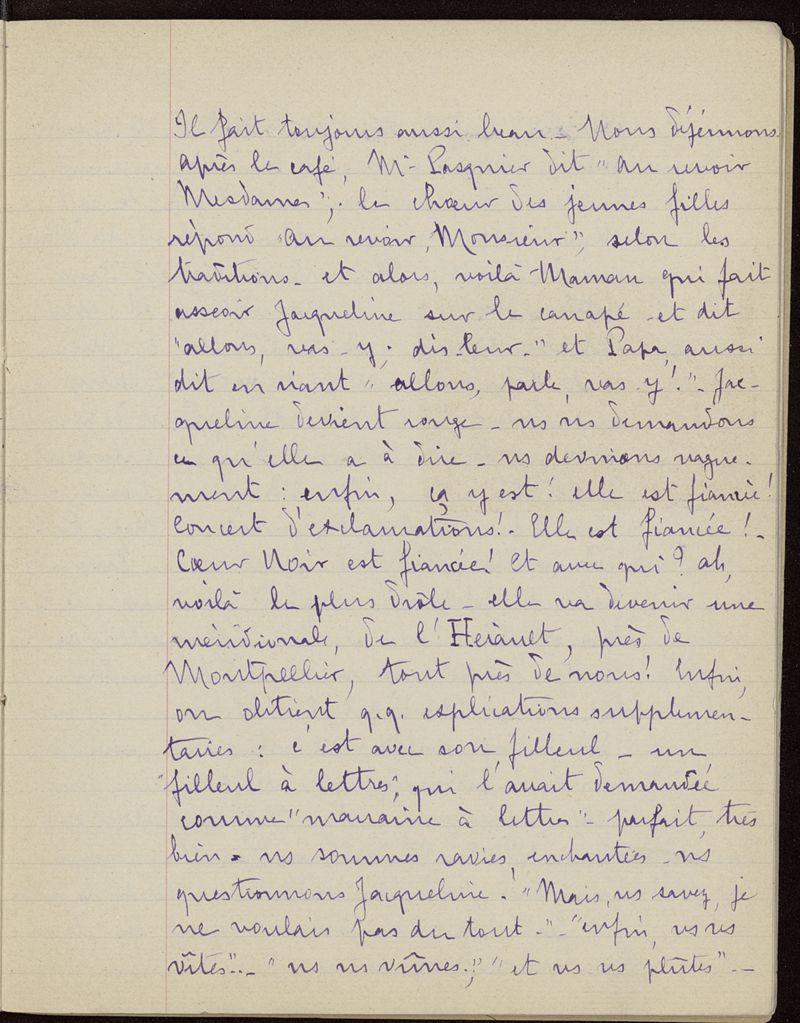 Il fait toujours aussi beau - Nous déjeunons
après le café, Mr Pasquier dit "au revoir
Mesdames", le chœur des jeunes filles
répond "au revoir, Monsieur", selon les
traditions - et alors, voilà Maman qui fait
asseoir Jacqueline sur le canapé - et dit
"allons, vas-y, dis-leur -" et Papa, aussi
dit en riant "allons, parle, vas y!" - Jac-
queline devient rouge - ns ns demandons
ce qu'elle a à dire - ns devinions vague-
ment : enfin, ça y est! elle est fiancée!
Concert d'exclamations! - Elle est fiancée! -
Cœur Noir est fiancée! Et avec qui? ah,
voilà le plus drôle - elle va devenir une
méridionale, de l'Hérault, près de
Montpellier, tout près de nous! Enfin,
on obtient q.q. explications supplémen-
taires : c'est avec son filleul - un
"filleul à lettres", qui l'avait demandée
comme "marraine à lettres" - parfait, très
bien - ns sommes ravies, enchantées - ns
questionnons Jacqueline. "Mais, vs savez, je
ne voulais pas du tout -" - "enfin, vs vs
vîtes" - "ns ns vîmes", "et vs vs plûtes" -